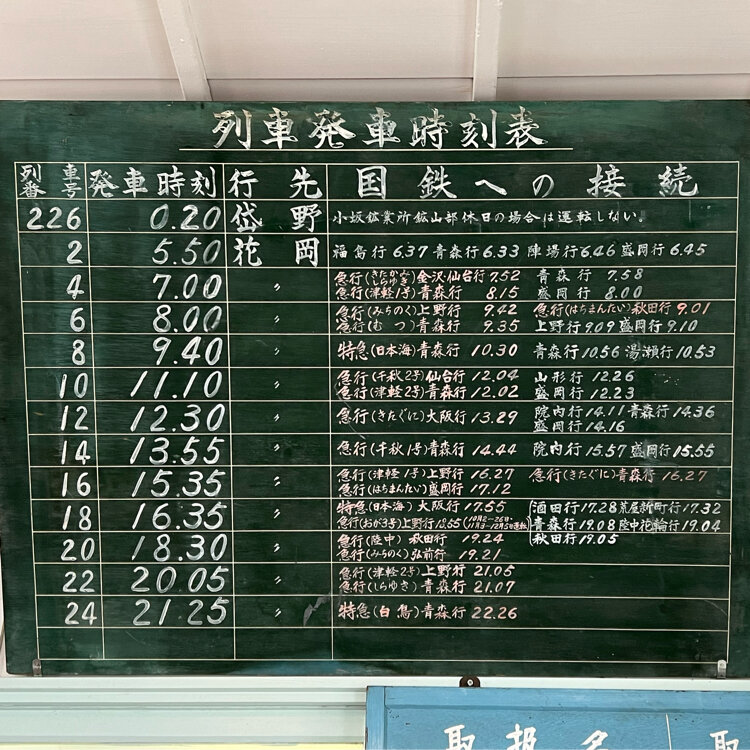 列車発車時刻表
列車番号 発車時刻 行先 国鉄への接続
226 0.20 岱野 小坂鉱業所鉱山部休日の場合は運転しない。
2 5.50 花岡 福島行6.37 青森行6.33 陣場行6.46 盛岡行6.45
4 7.00 〃 急行(きたかみ しらゆき)金沢・仙台行7.52 青森行7.58
急行(津軽1号)青森行 8.15 盛岡行 8.00
6 8.00 〃 急行(みちのく)上野行 9.42 急行(はちまんたい)秋田行9.01
急行(むつ)青森行 9.35 上野行9.09 盛岡行9.10
8 9.40 〃 特急(日本海)青森行 10.30 青森行10.56 湯瀬行10.53
10 11.10 〃 急行(千秋2号)仙台行 12.04 山形行 12.26
急行(津軽2号)青森行 12.02 盛岡行 12.23
12 12.30 〃 急行(きたぐに)大阪行 13.29 院内行14.11 青森行14.36
盛岡行 14.16
14 13.55 〃 急行(千秋1号)青森行 14.44 院内行15.57 盛岡行15.55
16 15.35 〃 急行(津軽1号)上野行 16.27 急行(きたぐに)青森行 16.27
急行(はちまんたい)盛岡行 17.12
18 16.35 〃 特急(日本海)大阪行 17.55 酒田行17.28 荒屋新町行17.32
急行(おが3号)上野行 青森行19.08 陸中花輪行19.04
秋田行19.05
20 18.30 〃 急行(陸中)秋田行 19.24
急行(みちのく)弘前行 19.21
22 20.05 〃 急行(津軽2号)上野行 21.05
急行(しらゆき)青森行 21.07
24 21.25 〃 特急(白鳥)青森行 22.26
取扱 取